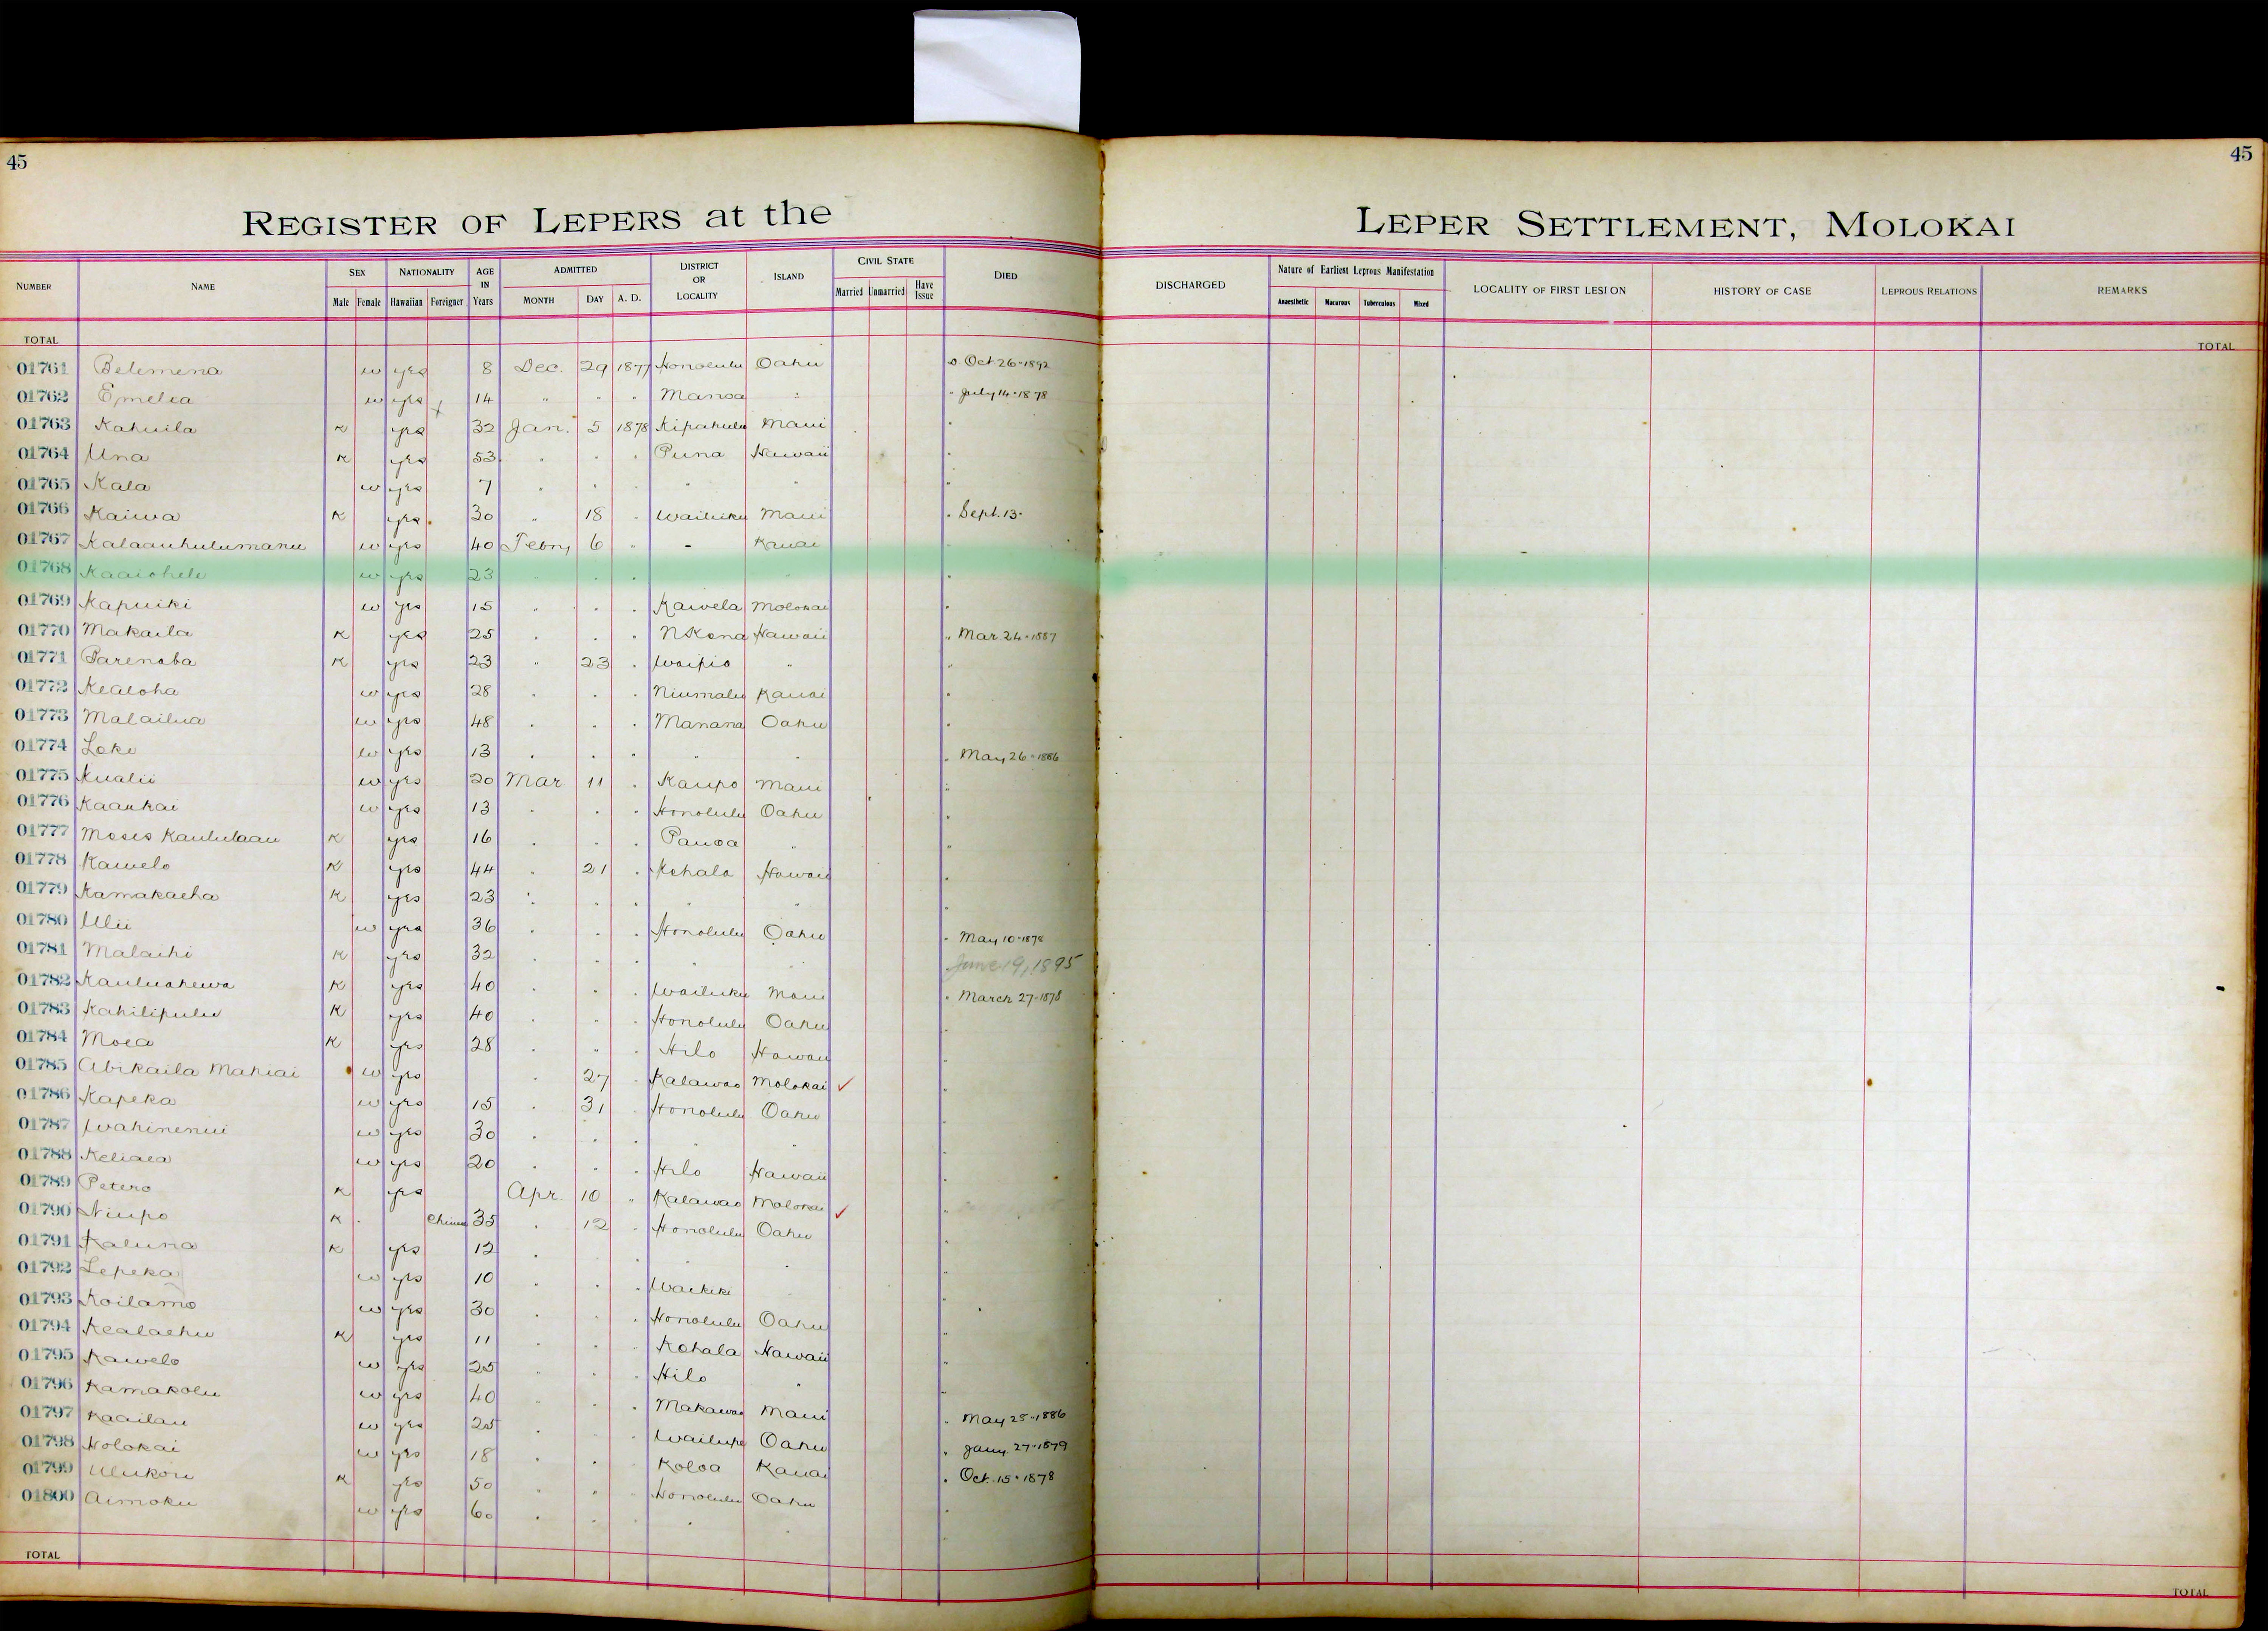 45
45
REGISTER OF LEPERS at the LEPER SETTLEMENT, MOLOKAI
NUMBER NAME SEX Male Female NATIONALITY Hawaiian Foreigner AGE IN Years ADMITTED MONTH DAY A. D. DISTRICT OR LOCALITY ISLAND CIVIL STATE Married Unmarried Have Issue DIED DISCHARGED Nature of Earliest Leprous Manifestation Anaesthetic Macurous Tuberculous Mixed LOCALITY OF FIRST LESION HISTORY OF CASE LEPROUS RELATIONS REMARKS
TOTAL TOTAL
01761 Belemena w yes 8 Dec. 29 1877 Honolulu Oahu D. Oct 26-1892
01762 Emelia w yes 14 " " " Manoa " " July 14-1878
01763 Kahuila K yes 32 Jan. 5 1878 Kipahulu Maui "
01764 Una K yes 53 " " " Puna Hawaii "
01765 Kala w yes 7 " " " " " "
01766 Kaiwa K yes 30 " 18 " Wailuku Maui " Sept. 13-
01767 Kalaauhulumanu w yes 40 Febry 6 " - Kauai "
01768 Kaaiohele w yes 23 " " " "
01769 Kapuiki w yes 15 " " " Kawela Molokai "
01770 Makaila K yes 25 " " " N Kona Hawaii " Mar 24-1887
01771 Parenaba K yes 23 " 23 " Waipio " "
01772 Kealoha w yes 28 " " " Niumalu Kauai "
01773 Malailua w yes 48 " " " Manana Oahu "
01774 Loke w yes 13 " " " " " " May 26-1886
01775 Kualii w yes 20 Mar 11 " Kaupo Maui "
01776 Kaaukai w yes 13 " " " Honolulu Oahu "
01777 Moses Kaululaau K yes 16 " " " Pauoa " "
01778 Kawelo K yes 44 " 21 " Kohala Hawaii "
01779 Kamakaeha K yes 23 " " " " " "
01780 Ulii w yes 36 " " " Honolulu Oahu " May 10-1878
01781 Malaihi K yes 32 " " " " " June 19, 1895
01782 Kauluahewa K yes 40 " " " Wailuku Maui " March 27-1878
01783 Kahilipulu K yes 40 " " " Honolulu Oahu "
01784 Moea K yes 28 " " " Hilo Hawaii "
01785 Abikaila Mahiai w yes " 27 " Kalawao Molokai ✓ "
01786 Kapeka w yes 15 " 31 " Honolulu Oahu "
01787 Wahinenui w yes 30 " " " " " "
01788 Keliaea w yes 20 " " " Hilo Hawaii "
01789 Petero K yes Apr. 10 " Kalawao Molokai ✓ "
01790 Niupo K Chinese 35 " 12 " Honolulu Oahu "
01791 Kaluna K yes 12 " " " "
01792 Lepeka w yes 10 " " " Waikiki " "
01793 Koilamo w yes 30 " " " Honolulu Oahu "
01794 Kealaehu K yes 11 " " " Kohala Hawaii "
01795 Kawelo w yes 25 " " " Hilo " "
01796 Kamakolu w yes 40 " " " Makawao Maui " May 25-1886
01797 Kaailau w yes 25 " " " Wailupe Oahu " Jany. 27-1879
01798 Holokai w yes 18 " " " Koloa Kauai " Oct. 15-1878
01799 Ulukou K yes 50 " " " Honolulu Oahu "
01800 Aimoku w yes 60 " " " " " "
TOTAL TOTAL